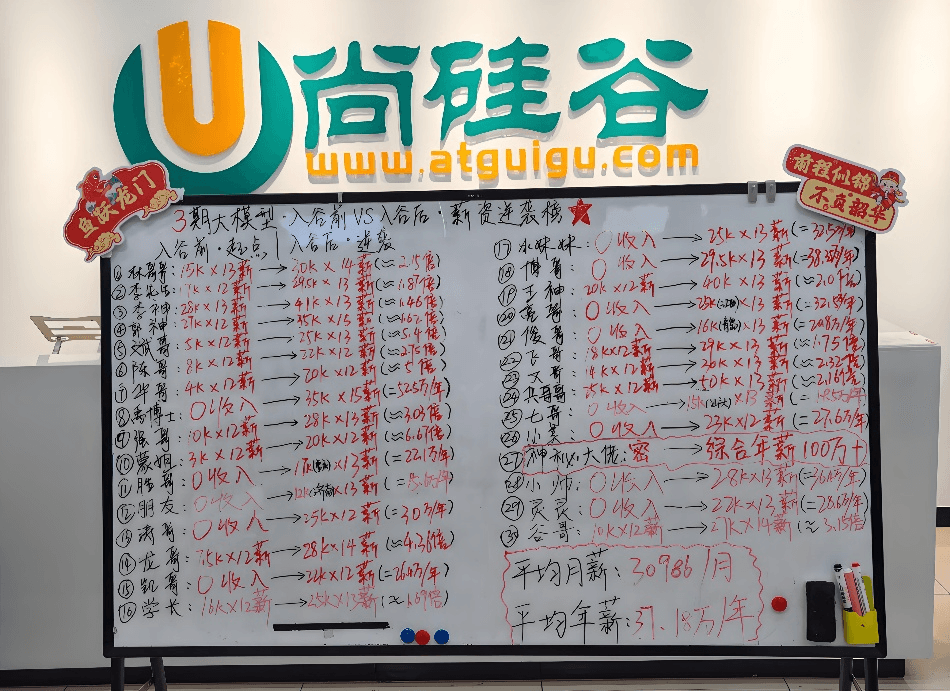 尚硅谷
www.atguigu.com
鱼跃龙门
前程似锦
不负韶华
3期大模型·入谷前VS入谷后·薪资逆袭榜
入谷前·起点 | 入谷后·逆袭
① 林哥哥:15K×13薪→30K×14薪(≈2.15倍)
② 李先生: ×12薪→29.5K×13薪(≈1.87倍)
③ 李神:28K×13薪→41K×13薪(≈1.46倍)
④ 郭神:27K×12薪→35K×15薪(≈1.62倍)
⑤ 文斌哥:5K×12薪→25K×13薪(≈5.4倍)
⑥ 陈哥:8K×12薪→22K×12薪(≈2.75倍)
⑦ 华哥:4K×12薪→20K×12薪(≈5倍)
⑧ 禹博士:0收入→35K×15薪(=52.5万/年)
⑨ 强哥:10K×12薪→28K×13薪(≈3.03倍)
⑩ 蒙姐:3K×12薪→20K×12薪(≈6.67倍)
⑪ 胜哥:0收入→17K ×13薪(=22.1万/年)
⑫ 朋友:0收入→12K ×13薪(=15.6万/年)
⑬ 涛哥:0收入→25K×12薪(=30万/年)
⑭ 龙哥:7.5K×12薪→28K×14薪(≈4.36倍)
⑮ 凯哥:0收入→24K×12薪(= 万/年)
⑯ 学长:16K×12薪→25K×13薪(≈1.69倍)
⑰ 小妹妹:0收入→25K×13薪(=32.5万/年)
⑱ 博哥:0收入→29.5K×13薪(=38.35万/年)
⑲ 王神:20K×12薪→40K×12薪(≈2.0倍)
⑳ 亮哥:0收入→25K ×13薪(=32.5万/年)
㉑ 俊哥:0收入→16K ×13薪(=20.8万/年)
㉒ 飞哥:18K×12薪→29K×13薪(≈1.75倍)
㉓ 文哥:14K×12薪→ ×13薪(≈2.32倍)
㉔ 哥哥:25K×12薪→50K×13薪(≈2.167倍)
㉕ 七哥:0收入→15K ×13薪(=19.5万/年)
㉖ 小吴:0收入→23K×12薪(=27.6万/年)
㉗ 神秘大佬:密→综合年薪100万+
㉘ 小师:0收入→28K×13薪(=36.4万/年)
㉙ 灵灵:0收入→22K×13薪(=28.6万/年)
㉚ 谷哥:10K×12薪→27K×14薪(≈3.15倍)
平均月薪:30986/月
平均年薪:37.18万/年